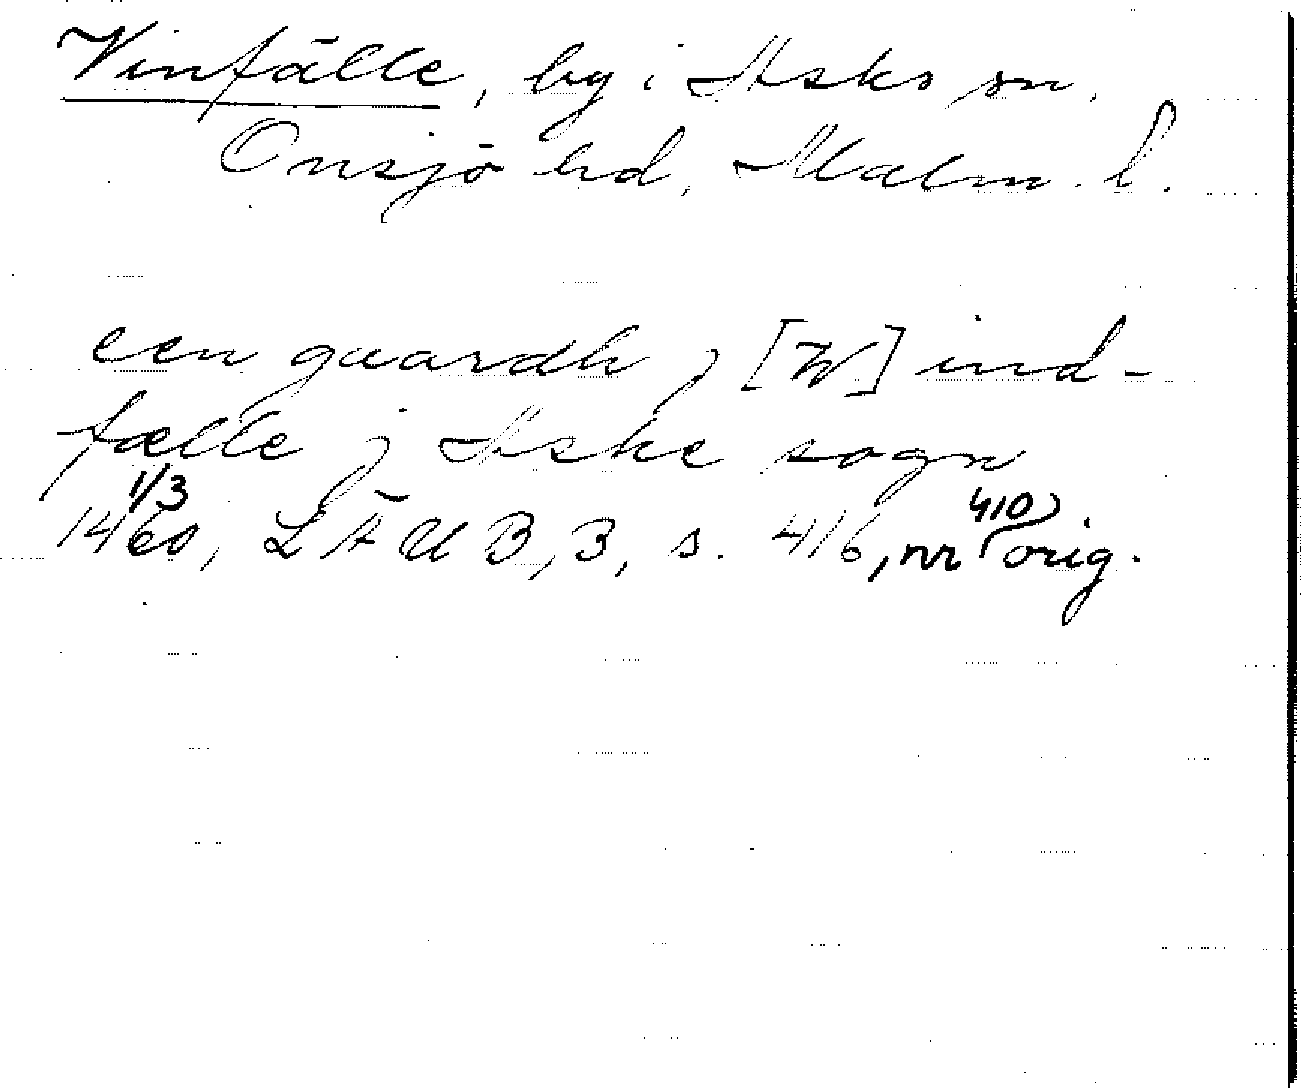 Vinfälle, by i Asks sn.
Onsjö hd, Malm. l.
een gaardh j [W]ind-
fælle j Aske sogn
1/3
1460, LÄUB, 3, s. 416, nr 410, orig.